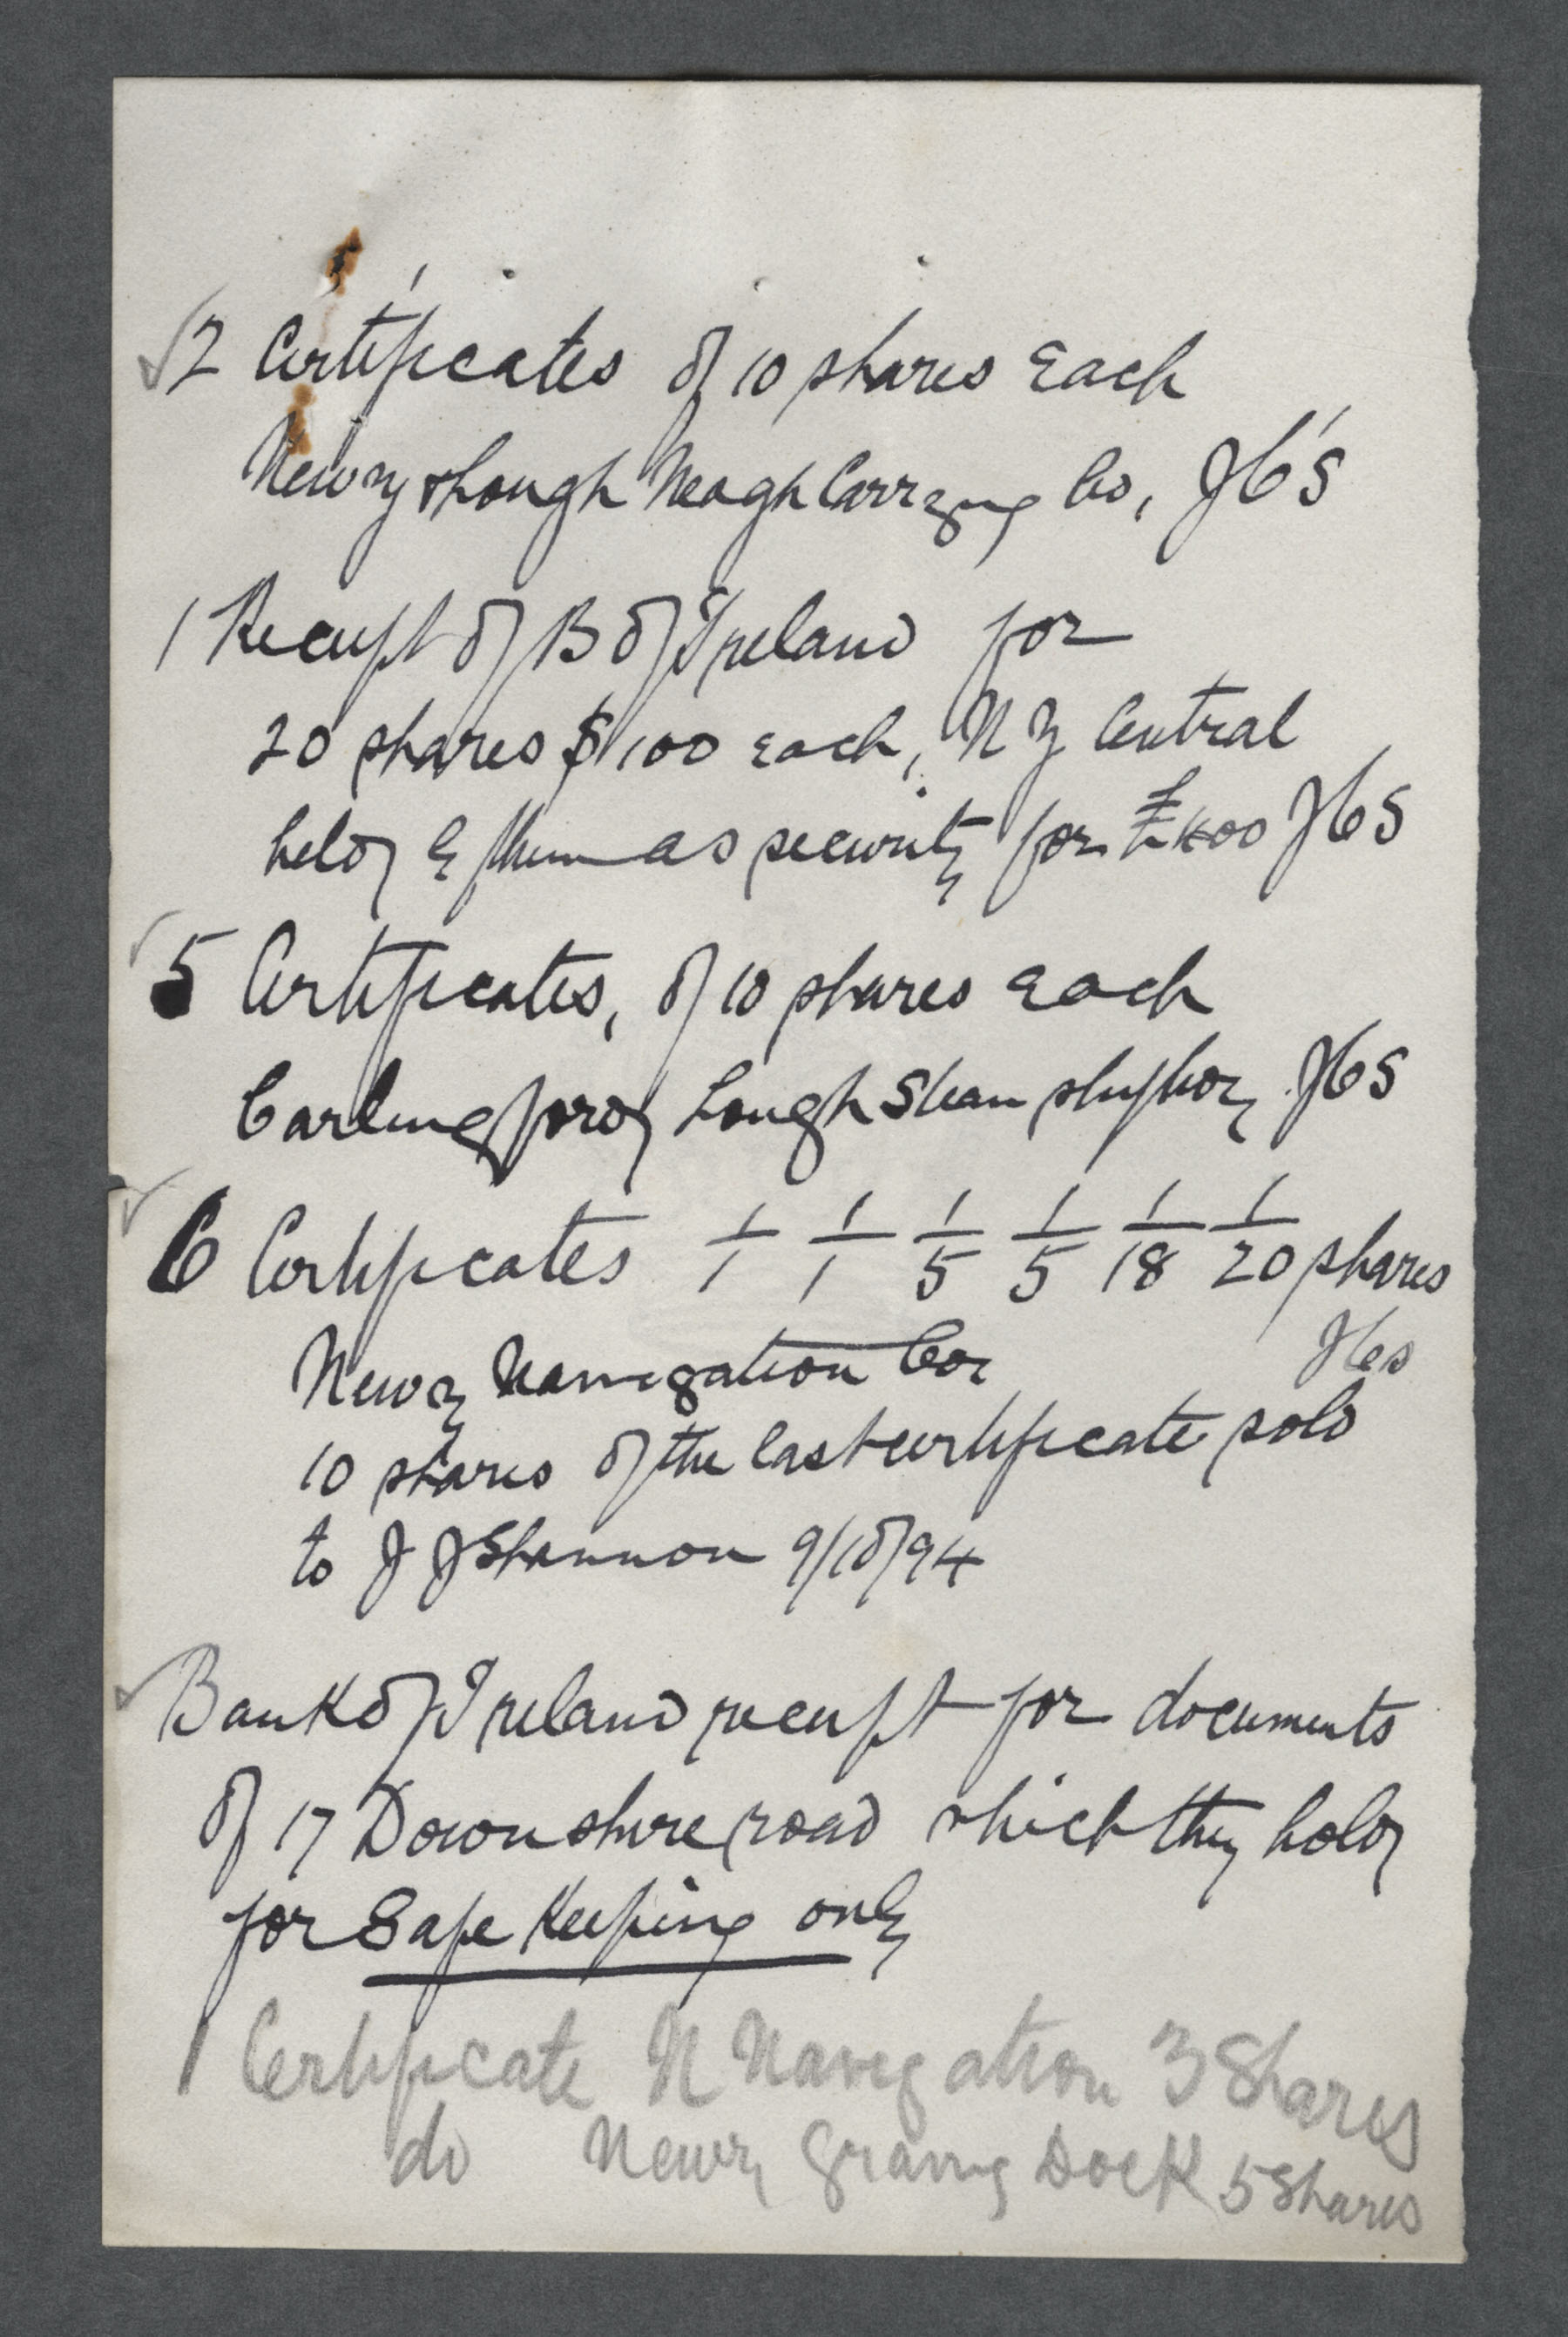 ✓2 Certificates of 10 shares Each
Newry & Lough Neagh Carrying Co, JHS
1 Receipt of B of Ireland for
20 shares $100 each, N Y Central
held by them as security for £400 JHS
✓5 Certificates, of 10 shares Each
Carlingford Lough Steam ship Coy JHS
✓6 Certificates 1/1 1/1 1/5 1/5 1/18 1/20 shares
Newry Navigation Coy JHS
10 shares of the last certificate sold
to J J Shannon 9/10/94
✓Bank of Ireland receipt for documents
of 17 Downshire road which they hold
for Safe Keeping only
1 Certificate N Navigation 3 Shares
do Newry Graving Dock 5 Shares